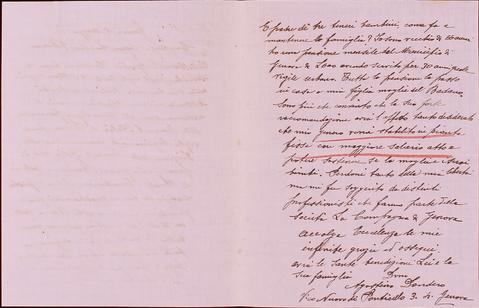 È padre di tre teneri bambini come fa a
mantenere la famiglia? Io sono vecchio di anni
ho una pensione mensile del Municipio di
Genova di avendo servito per 30 anni quale
vigile urbano. Tutta la pensione la passo
in casa a mia figlia moglie del
sono più che convinto che la Sua forte
raccomandazione avrà l'effetto tanto desiderato
che mio genero verrà stabilito in pianta
fissa con maggiore salario atto a
potere sostenere se la moglie e i suoi
bimbi. Perdoni tanto della mia libertà
ma mi fu suggerito da distinti
professionisti che fanno parte della
Società La Compagna di Genova
Accolga Eccellenza le mie
infinite grazie ed ossequi
avrà le sante benedizioni Lei e la
Sua famiglia Dmo
Agostino
Via Nuova di Ponticello 3. 4. Genova